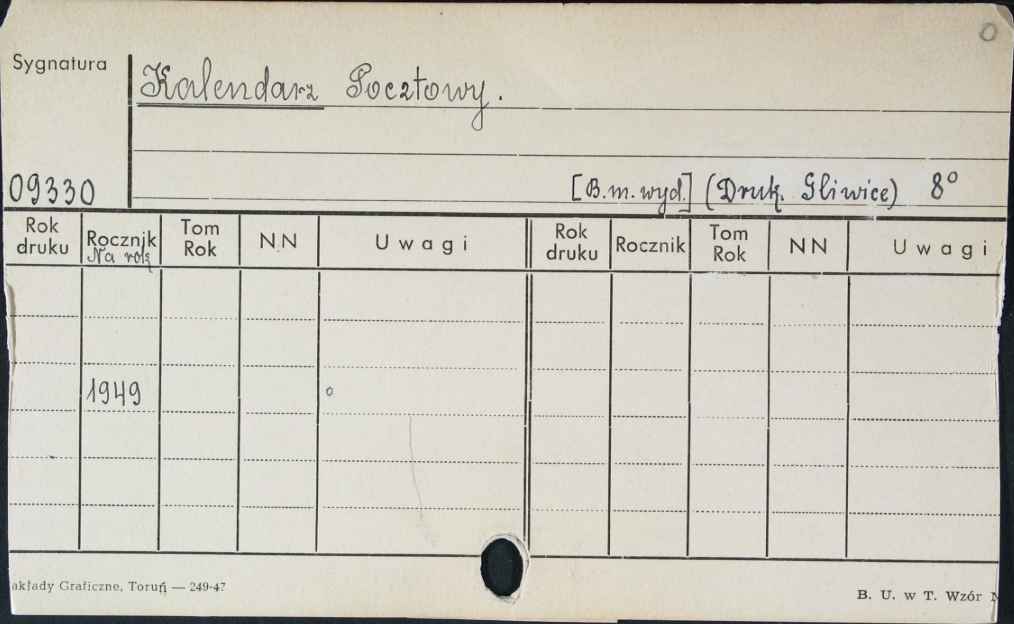 0
Sygnatura
Kalendarz Pocztowy.
09330
[B. m. wyd.] (Druk. Gliwice) 8°
Rok druku Rocznik Na rok Tom Rok NN Uwagi Rok druku Rocznik Tom Rok NN Uwagi
1949 o
akłady Graficzne, Toruń — 249-47
B. U. w T. Wzór